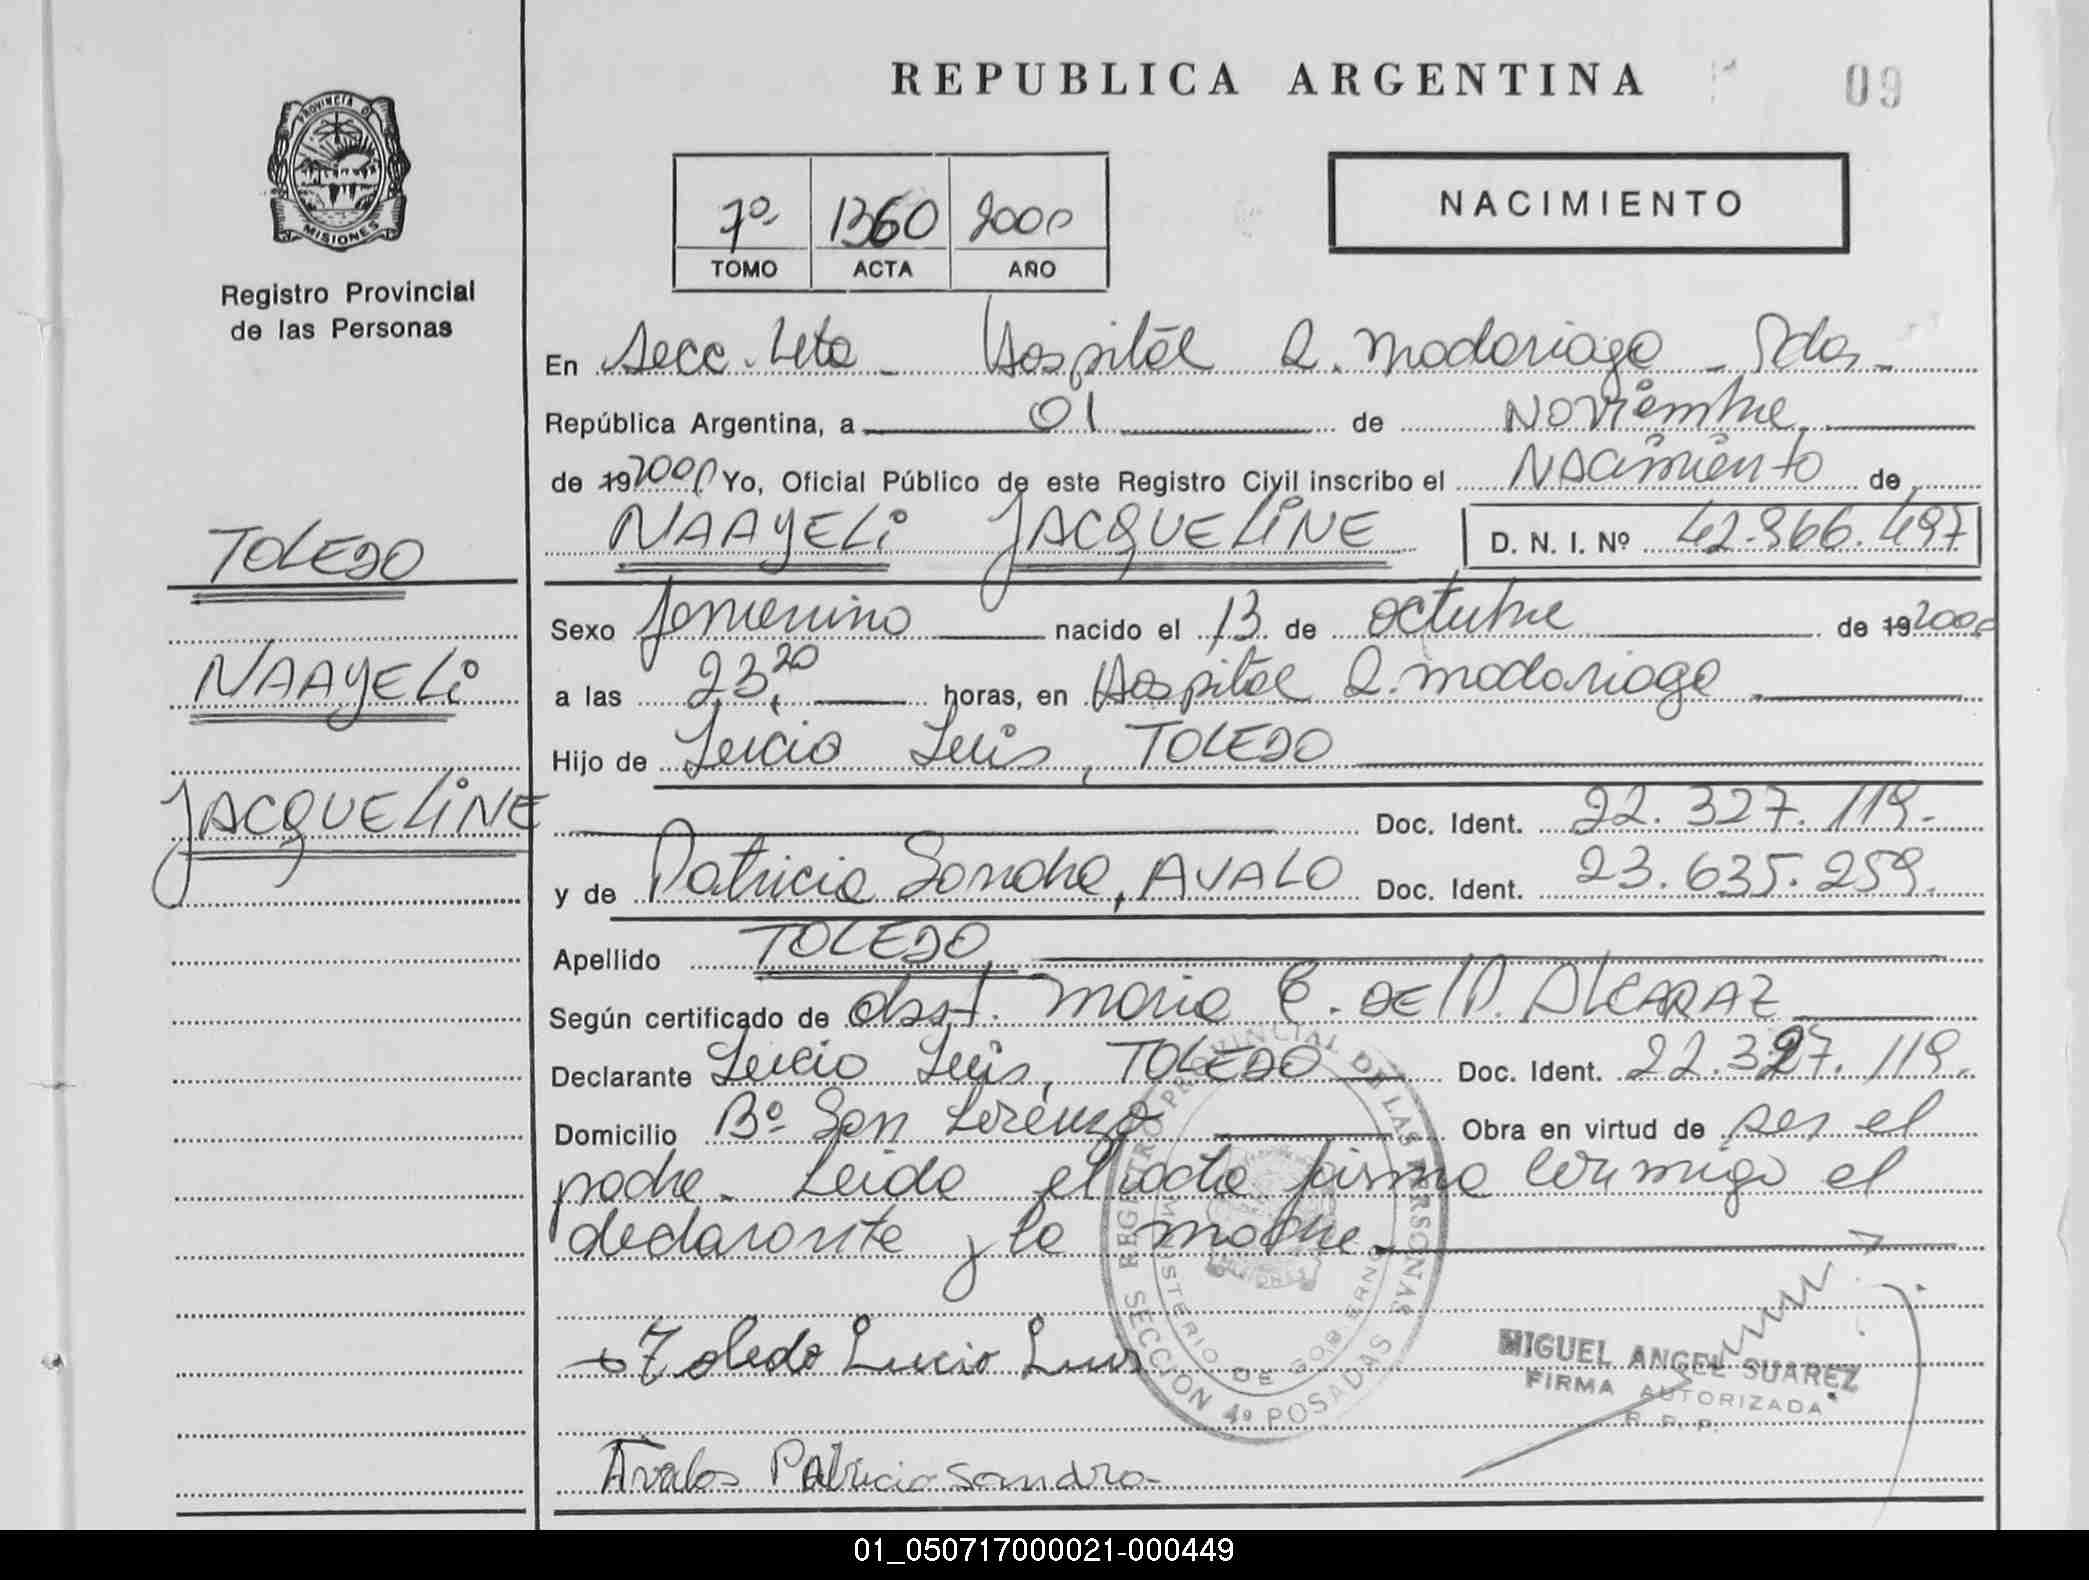 REPUBLICA ARGENTINA
09
PROVINCIA D
MISIONES
Registro Provincial
de las Personas
7º 1360 2000
TOMO ACTA AÑO
NACIMIENTO
En Secc. 4ta - Hospital R. Madariaga - Pdas -
República Argentina, a 01 de Noviembre
de 19 2000 Yo, Oficial Público de este Registro Civil inscribo el Nacimiento de
NAAYELI JACQUELINE D. N. I. Nº 42.966.497
TOLEDO
NAAYELI
JACQUELINE
Sexo femenino nacido el 13 de octubre de 19 2000
a las 23,20 horas, en Hospital R. Madariaga
Hijo de Lucio Luis, TOLEDO
Doc. Ident. 22.327.119.
y de Patricia Sandra, AVALO Doc. Ident. 23.635.259.
Apellido TOLEDO
Según certificado de obst. Maria E. DE ALCARAZ
Declarante Lucio Luis, TOLEDO Doc. Ident. 22.327.119.
Domicilio Bº San Lorenzo Obra en virtud de ser el
padre. Leida el acta firma conmigo el
declarante y la madre.
Toledo Lucio Luis
Avalos Patricia Sandra
REGISTRO PROVINCIAL DE LAS PERSONAS
MINISTERIO DE GOBIERNO
SECCION 4ª POSADAS
MIGUEL ANGEL SUAREZ
FIRMA AUTORIZADA
R. P. P.
01_050717000021-000449